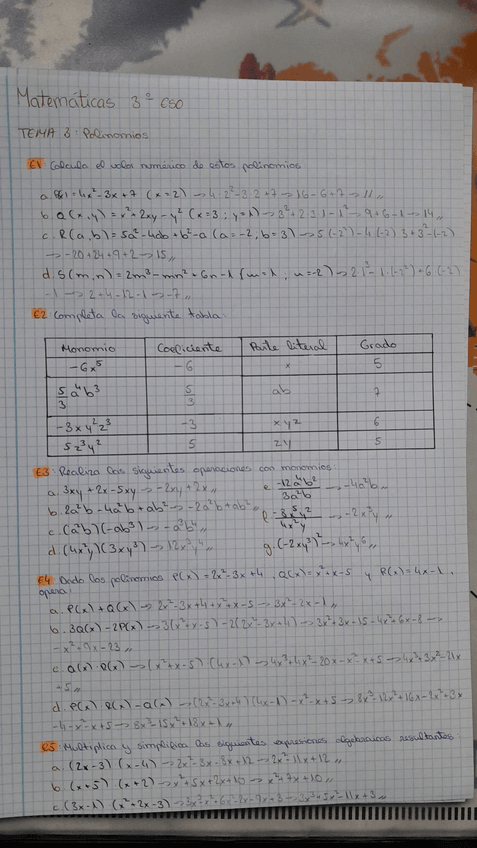 Matemáticas 3º ESO
TEMA 3: Polinomios
E1 Calcula el valor numérico de estos polinomios
a. = 4x²-3x+7 (x=2) → 4·2²-3·2+7 → 16-6+7 → 11,,
b. Q(x,y) = x²+2xy-y² (x=3; y=1) → 3²+2·3·1-1² → 9+6-1 → 14,,
c. R(a,b) = 5a²-4ab+b²-a (a=-2, b=3) → 5(-2²)-4(-2)·3+3²-(-2)
→ -20+24+9+2 → 15,,
d. S(m,n) = 2m³-mn²+6n-1 (m=1, n=-2) → 2·1³-1·(-2²)+6·(-2)
-1 → 2+4-12-1 → -7,,
E2 Completa la siguiente tabla:
Monomio Coeficiente Parte literal Grado
-6x⁵ -6 x 5
5/3 a⁴b³ 5/3 ab 7
-3xy²z³ -3 xyz 6
5z³y² 5 zy 5
E3 Realiza las siguientes operaciones con monomios:
a. 3xy+2x-5xy → -2xy+2x,, e. -12a⁴b²/3a²b → -4a²b,,
b. 2a²b-4a²b+ab² → -2a²b+ab²,, f. y²/4x²y → -2x³y,,
c. (a²b)(-ab³) → -a³b⁴,,
d. (4x²y)(3xy³) → 12x³y⁴,, g. (-2xy³)² → 4x²y⁶,,
E4 Dado los polinomios P(x)=2x²-3x+4, Q(x)=x²+x-5 y R(x)=4x-1,
opera:
a. P(x)+Q(x) → 2x²-3x+4+x²+x-5 → 3x²-2x-1,,
b. 3Q(x)-2P(x) → 3(x²+x-5)-2(2x²-3x+4) → 3x²+3x-15-4x²+6x-8 →
-x²+9x-23,,
c. Q(x)·R(x) → (x²+x-5)·(4x-1) → 4x³+4x²-20x-x²-x+5 → 4x³+3x²-21x
+5,,
d. P(x)·R(x)-Q(x) → (2x²-3x+4)(4x-1)-x²-x+5 → 8x³-12x²+16x-2x²+3x
-4-x²-x+5 → 8x³-15x²+18x+1,,
E5: Multiplica y simplifica las siguientes expresiones algebraicas resultantes
a. (2x-3)(x-4) → 2x²-8x-3x+12 → 2x²-11x+12,,
b. (x+5)(x+2) → x²+5x+2x+10 → x²+7x+10,,
c. (3x-1)(x²+2x-3) → 3x³-x²+6x²-2x-9x+3 → 3x³+5x²-11x+3,,